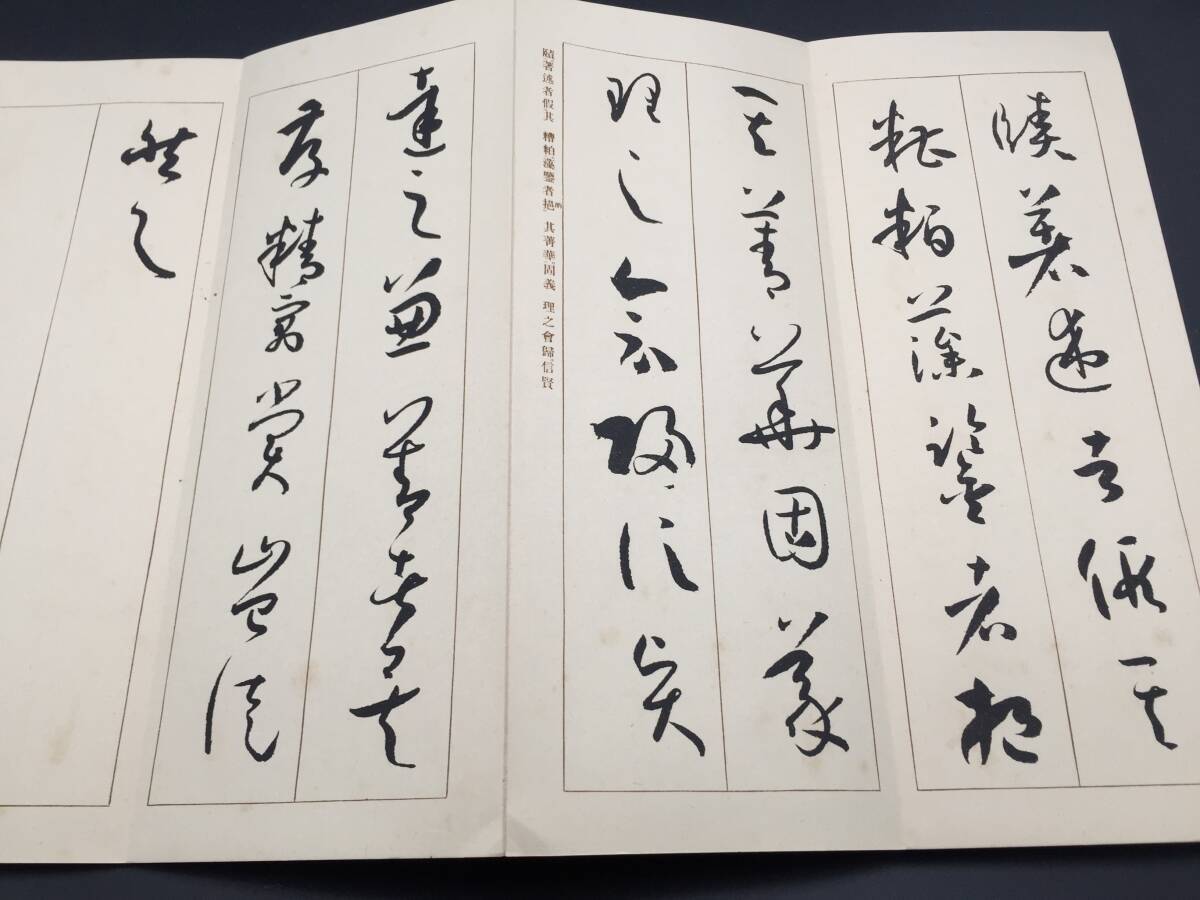 賾著述者假其
糟粕藻鑒者挹
其菁華固義
理之會歸信賢
賾著述者假其 糟粕藻鑒者挹 其菁華固義 理之會歸信賢
達之兼善者矣
存精寓賞豈徒
然與